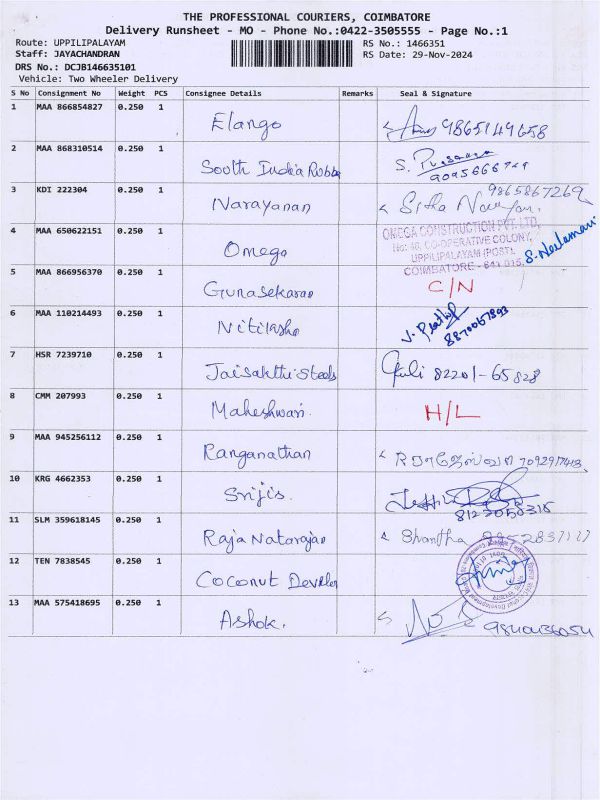 THE PROFESSIONAL COURIERS, COIMBATORE
Delivery Runsheet - MO - Phone No.:0422-3505555 - Page No.:1
Route: UPPILIPALAYAM
Staff: JAYACHANDRAN
DRS No.: DCJB146635101
Vehicle: Two Wheeler Delivery
RS No.: 1466351
RS Date: 29-Nov-2024
S No Consignment No Weight PCS Consignee Details Remarks Seal & Signature
1 MAA 866854827 0.250 1 Elango 9865149658
2 MAA 868310514 0.250 1 South India Rubbe S. 9095666729
3 KDI 222304 0.250 1 Narayanan Sitha 9865867269
4 MAA 650622151 0.250 1 Omega
OMEGA CONSTRUCTION PVT. LTD,
No: 40, CO-OPERATIVE COLONY,
UPPILIPALAYAM (POST),
COIMBATORE - 641 015.
5 MAA 866956370 0.250 1 Gunasekaran C/N
6 MAA 110214493 0.250 1 8870067893
7 HSR 7239710 0.250 1 Jaisakthi Steels 82201-65828
8 CMM 207993 0.250 1 Maheshwari. H/L
9 MAA 945256112 0.250 1 Ranganathan 7092917413
10 KRG 4662353 0.250 1 Srijis. 8123058318
11 SLM 359618145 0.250 1 Raja Natarajan Shantha
12 TEN 7838545 0.250 1 Coconut Develon
13 MAA 575418695 0.250 1 Ashok. 9840436054